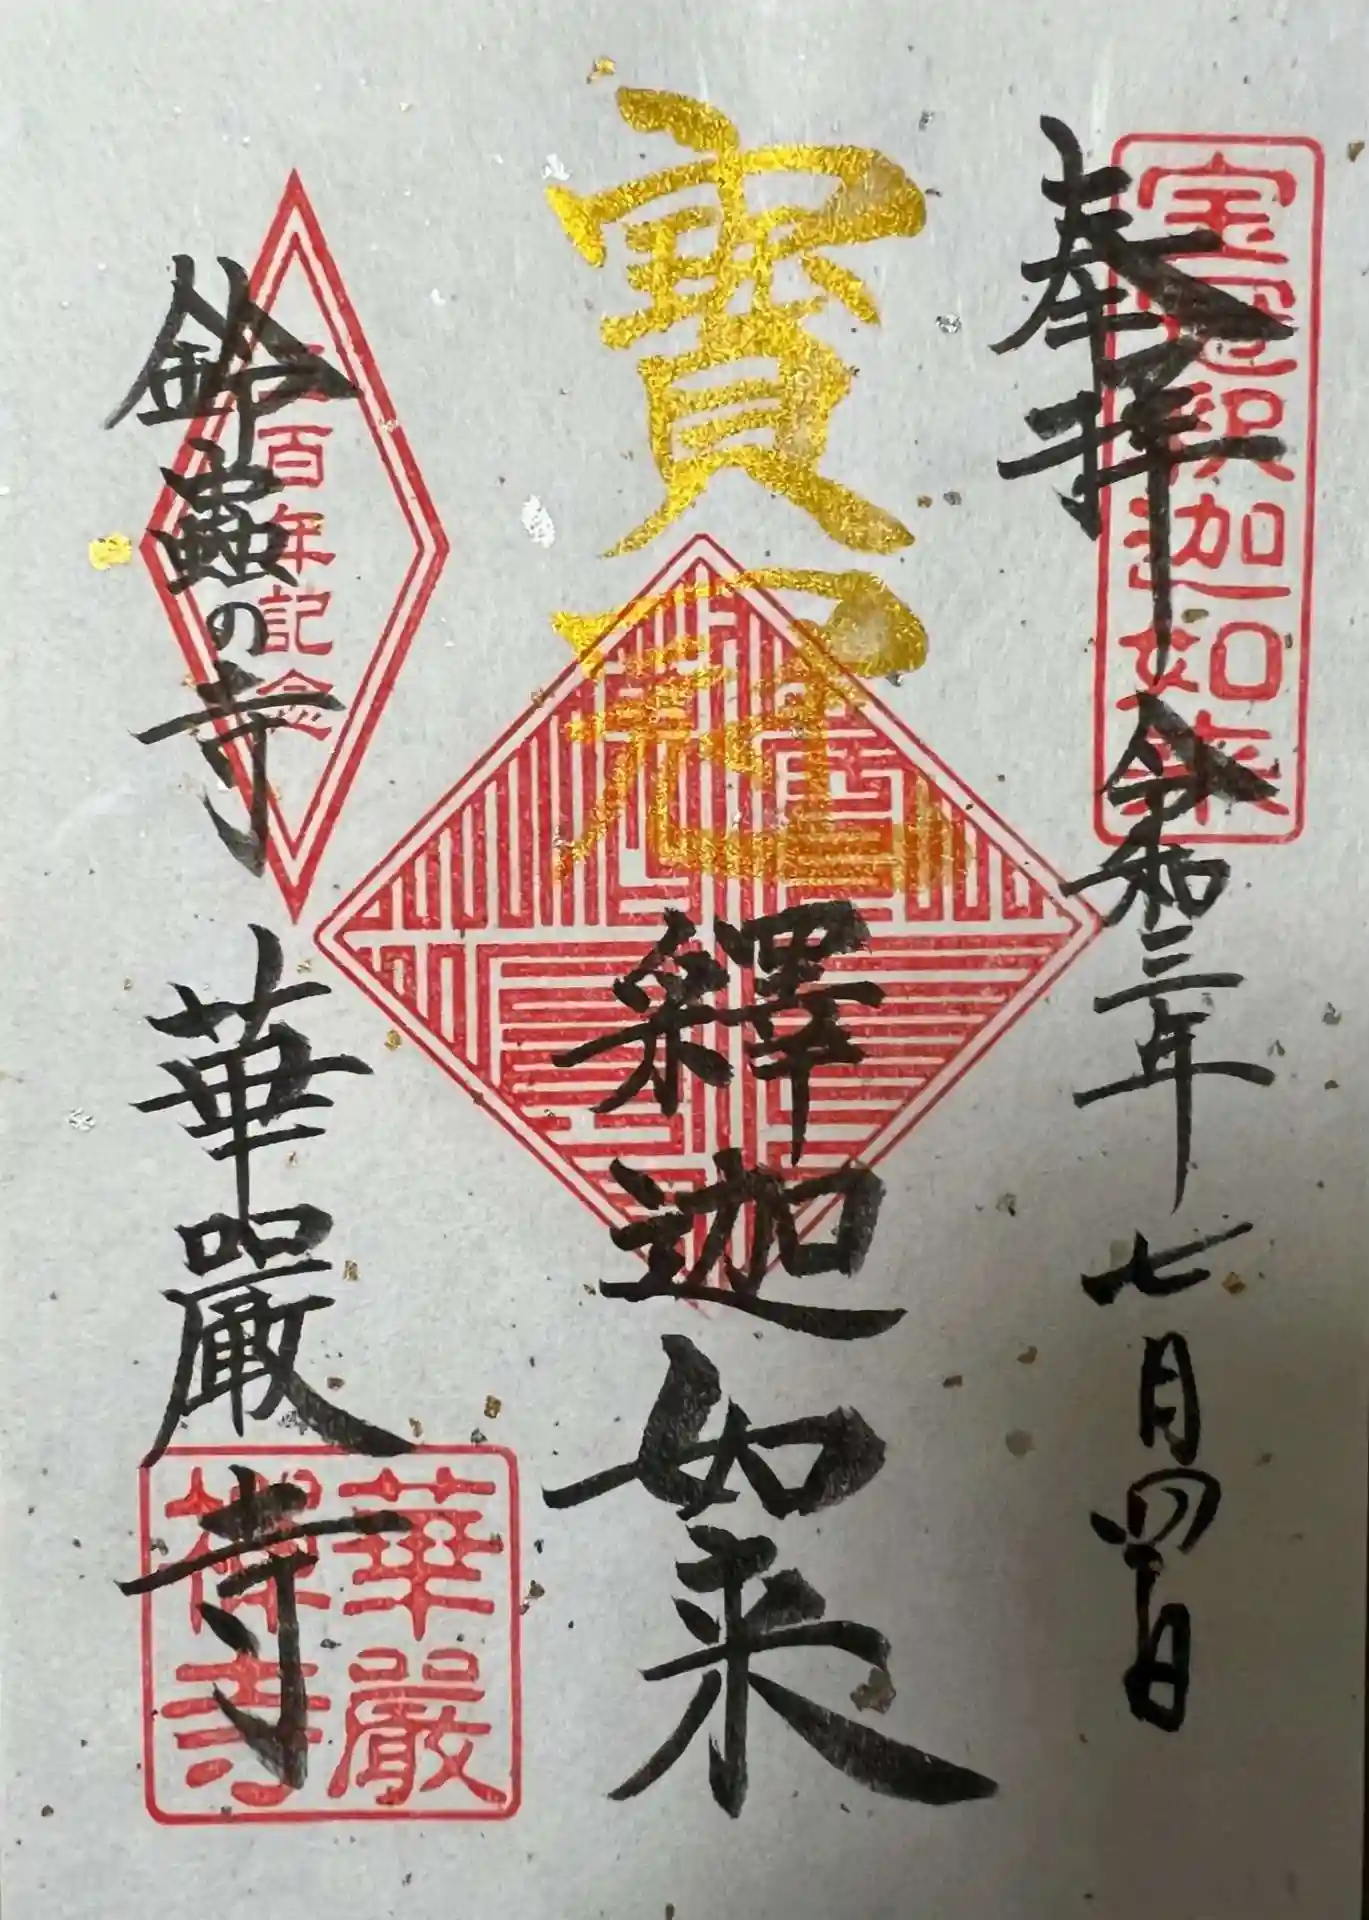 奉拝 令和三年七月四日
宝冠釈迦如来
寶冠
釋迦如来
鈴蟲の寺 華嚴寺
百年記念
華嚴
禅寺